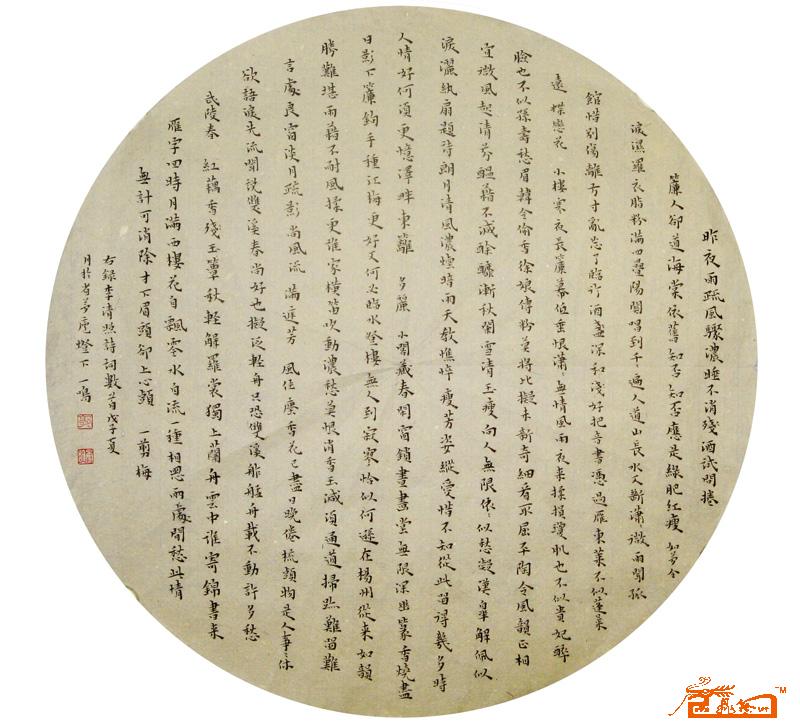 昨夜雨疏風驟濃睡不消殘酒試問捲
簾人卻道海棠依舊知否知否應是綠肥紅瘦 如夢令
淚濕羅衣脂粉滿四疊陽關唱到千千遍人道山長水又斷瀟瀟微雨聞孤
館惜別傷離方寸亂忘了臨行酒盞深和淺好把音書憑過雁東萊不似蓬萊
遠 蝶戀花 小樓寒夜長簾幕低垂恨瀟瀟無情風雨夜來揉損瓊肌也不似貴妃醉
臉也不似孫壽愁眉韓令偷香徐娘傅粉莫將比擬未新奇細看取屈平陶令風韻正相
宜微風起清芬醞藉不減酴醾漸秋闌雪清玉瘦向人無限依依似愁凝漢皋解佩似
淚灑紈扇題詩朗月清風濃煙暗雨天教憔悴瘦芳姿縱愛惜不知從此留得幾多時
人情好何須更憶澤畔東籬 多麗 小閣藏春閒窗鎖晝畫堂無限深幽篆香燒盡
日影下簾鉤手種江梅更好又何必臨水登樓無人到寂寥恰似何遜在楊州從來如韻
勝難堪雨藉不耐風揉更誰家橫笛吹動濃愁莫恨消香玉減須通道掃跡難留難
言處良窗淡月疏影尚風流 滿庭芳 風住塵香花已盡日晚倦梳頭物是人事事休
欲語淚先流聞說雙溪春尚好也擬泛輕舟只恐雙溪舴艋舟載不動許多愁
武陵春 紅藕香殘玉簟秋輕解羅裳獨上蘭舟雲中誰寄錦書來
雁字回時月滿西樓花自飄零水自流一種相思兩處閒愁此情
無計可消除才下眉頭卻上心頭 一剪梅
右錄李清照詩詞數首戊子夏
月於
燈下一鳴